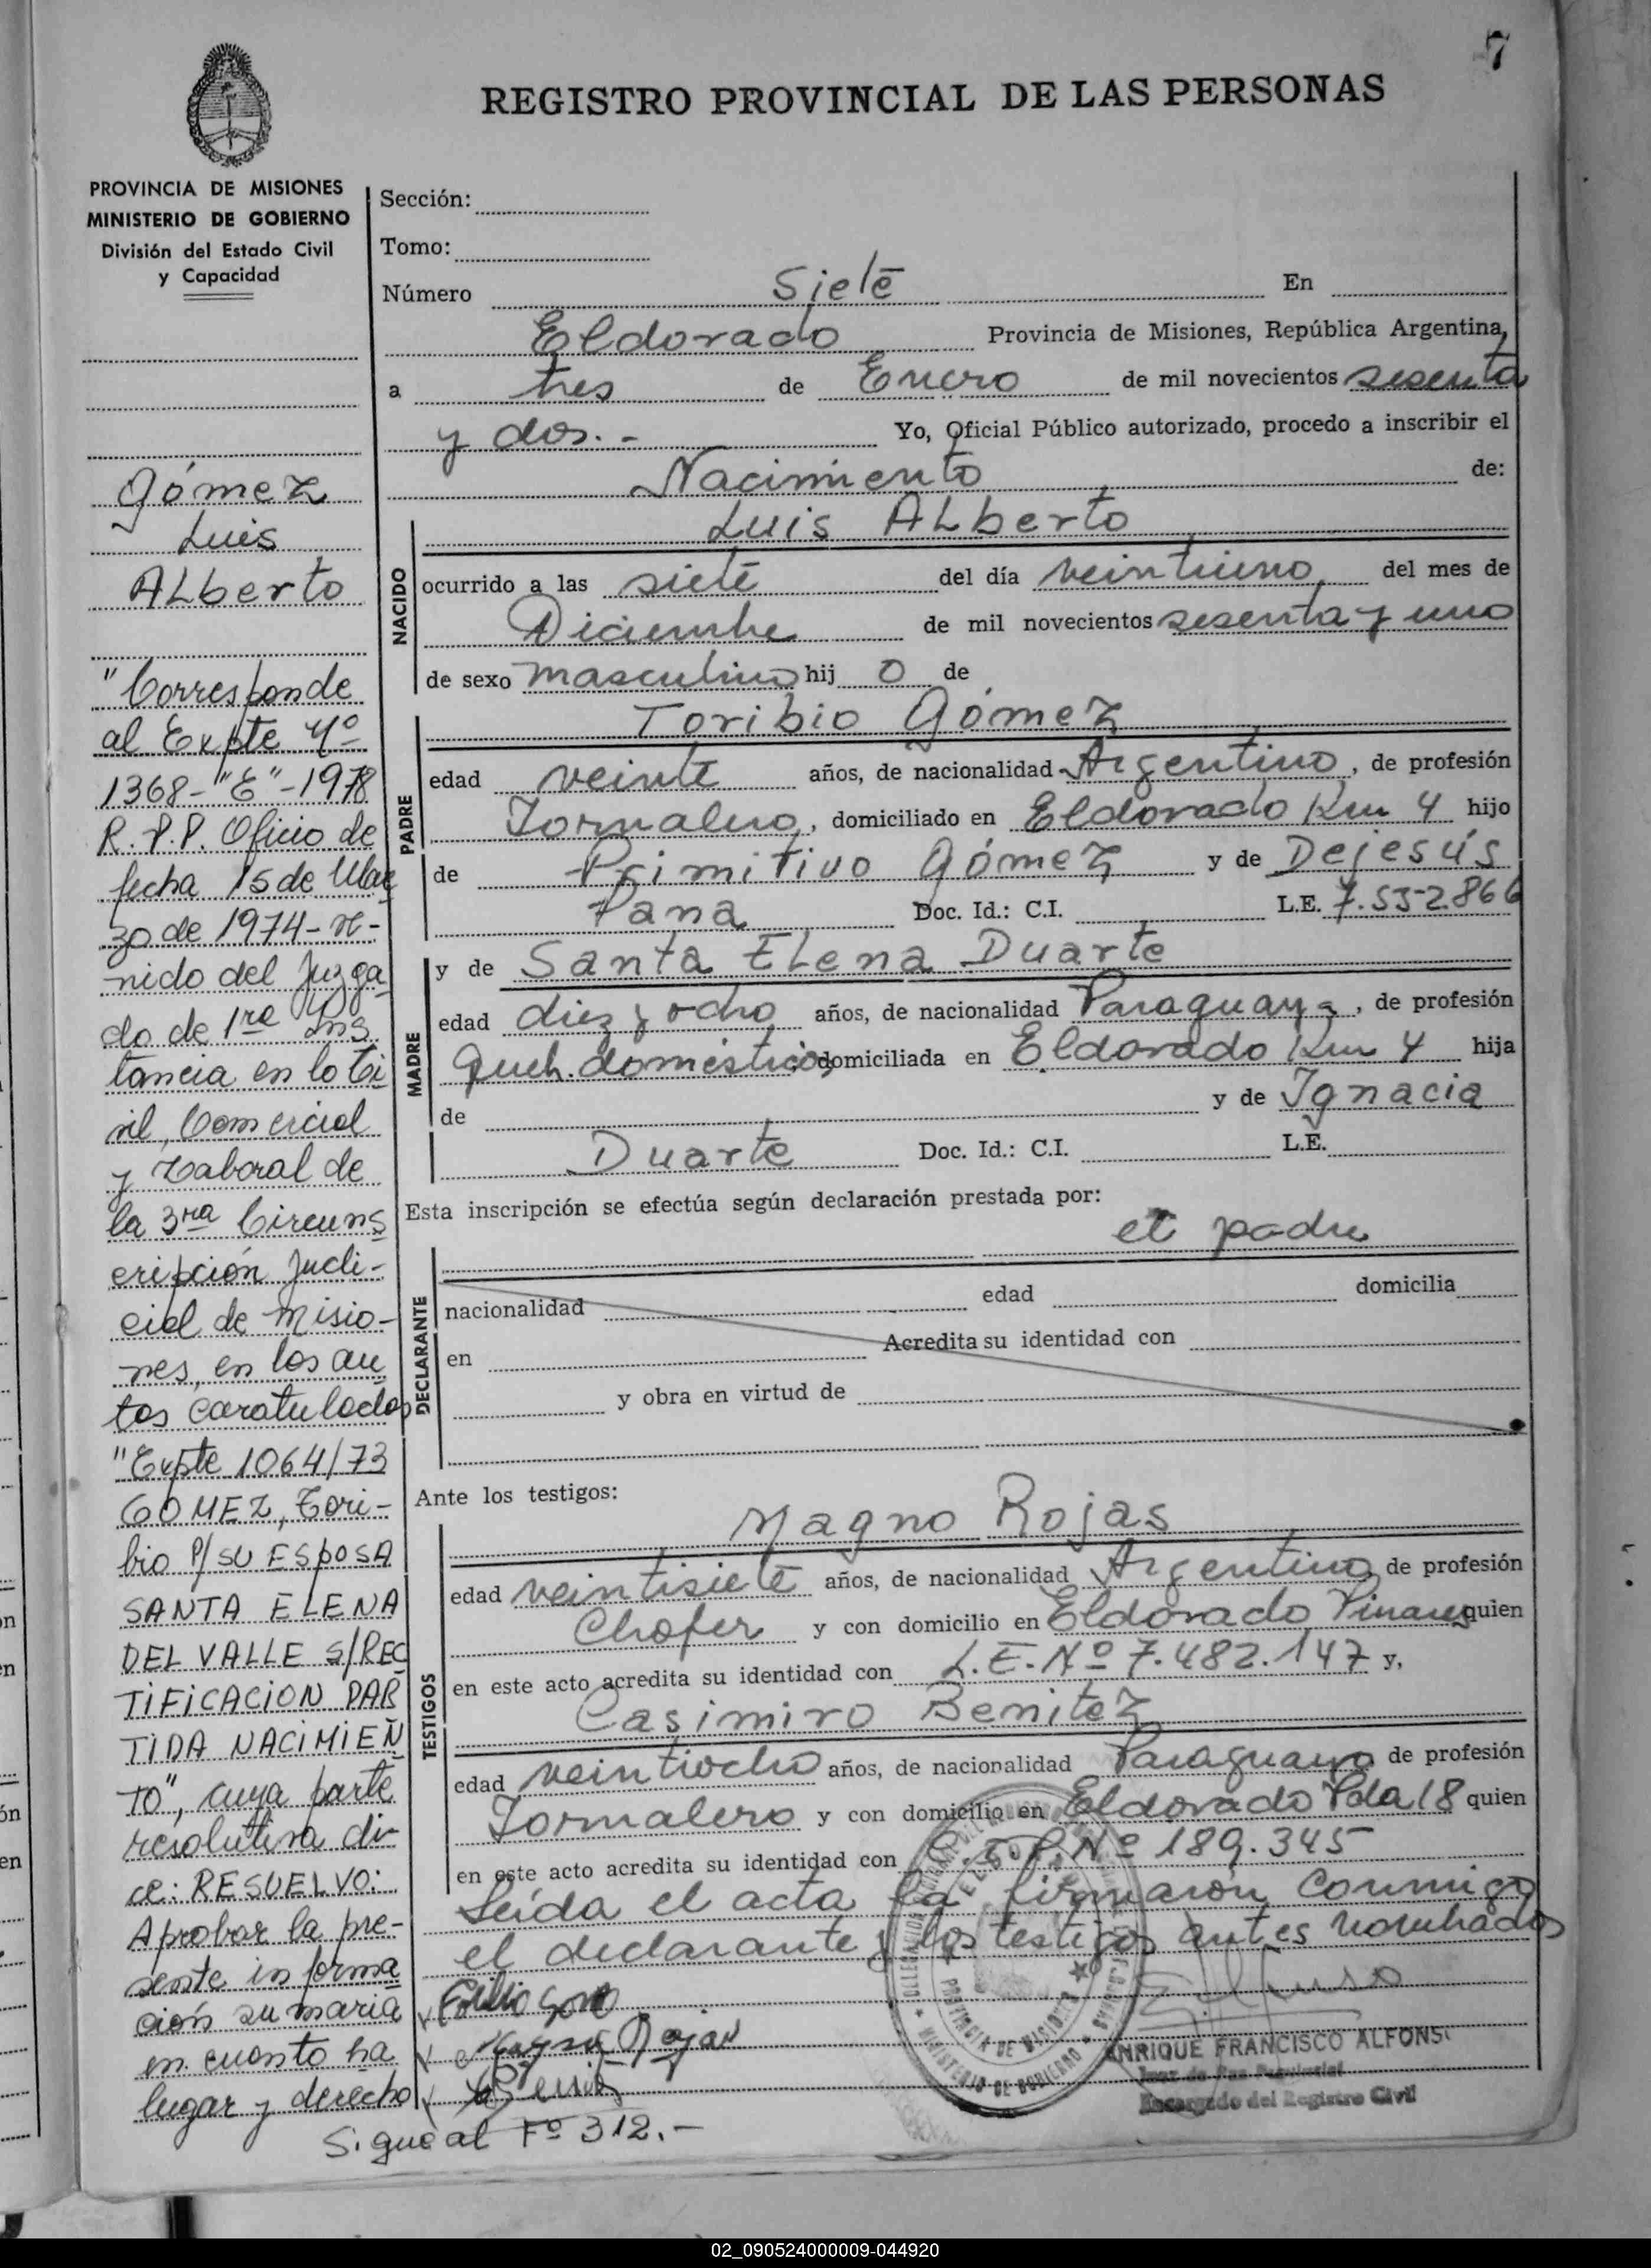 7
REGISTRO PROVINCIAL DE LAS PERSONAS
PROVINCIA DE MISIONES
MINISTERIO DE GOBIERNO
División del Estado Civil
y Capacidad
Gómez
Luis
ALberto
"Corresponde
al Expte Nº
1368-"E"-1978
R.P.P. Oficio de
fecha 15 de Mar
zo de 1974- ve-
nido del Juzga
do de 1ra Ins
tancia en lo Ci
vil, Comercial
y Laboral de
la 3ra Circuns
cripción Judi-
cial de Misio-
nes, en los au
tos caratulados
"Expte 1064/73
GOMEZ, Tori-
bio P/SU ESPOSA
SANTA ELENA
DEL VALLE S/REC
TIFICACION PAR
TIDA NACIMIEN
TO", cuya parte
resolutiva di-
ce: RESUELVO:
Aprobar la pre-
sente informa
ción sumaria
en cuanto ha
lugar y derecho
Sigue al Fº 312.-
Sección:
Tomo:
Número Siete En
Eldorado Provincia de Misiones, República Argentina,
a tres de Enero de mil novecientos sesenta
y dos.- Yo, Oficial Público autorizado, procedo a inscribir el
Nacimiento de:
NACIDO
Luis ALberto
ocurrido a las siete del día veintiuno del mes de
Diciembre de mil novecientos sesenta y uno
de sexo masculino hij o de
PADRE
Toribio Gómez
edad veinte años, de nacionalidad Argentino, de profesión
Jornalero, domiciliado en Eldorado Km 4 hijo
de Primitivo Gómez y de Dejesús
Pana Doc. Id.: C.I. L.E. 7.552.866
MADRE
y de Santa ELena Duarte
edad diez y ocho años, de nacionalidad Paraguaya, de profesión
Queh. domésticos, domiciliada en Eldorado Km 4 hija
de y de Ignacia
Duarte Doc. Id.: C.I. L.E.
Esta inscripción se efectúa según declaración prestada por:
el padre
DECLARANTE
nacionalidad edad domicilia
en Acredita su identidad con
y obra en virtud de
Ante los testigos:
TESTIGOS
Magno Rojas
edad veintisiete años, de nacionalidad Argentino, de profesión
Chofer y con domicilio en Eldorado Pinares quien
en este acto acredita su identidad con L.E. Nº 7.482.147 y,
Casimiro Benitez
edad veintiocho años, de nacionalidad Paraguayo de profesión
Jornalero y con domicilio en Eldorado Pda 18 quien
en este acto acredita su identidad con Nº 189.345
Leída el acta la firmaron conmigo
el declarante y los testigos antes nombrados
ENRIQUE FRANCISCO ALFONSO
Encargado del Registro Civil
PROVINCIA DE MISIONES
MINISTERIO DE GOBIERNO
02_090524000009-044920